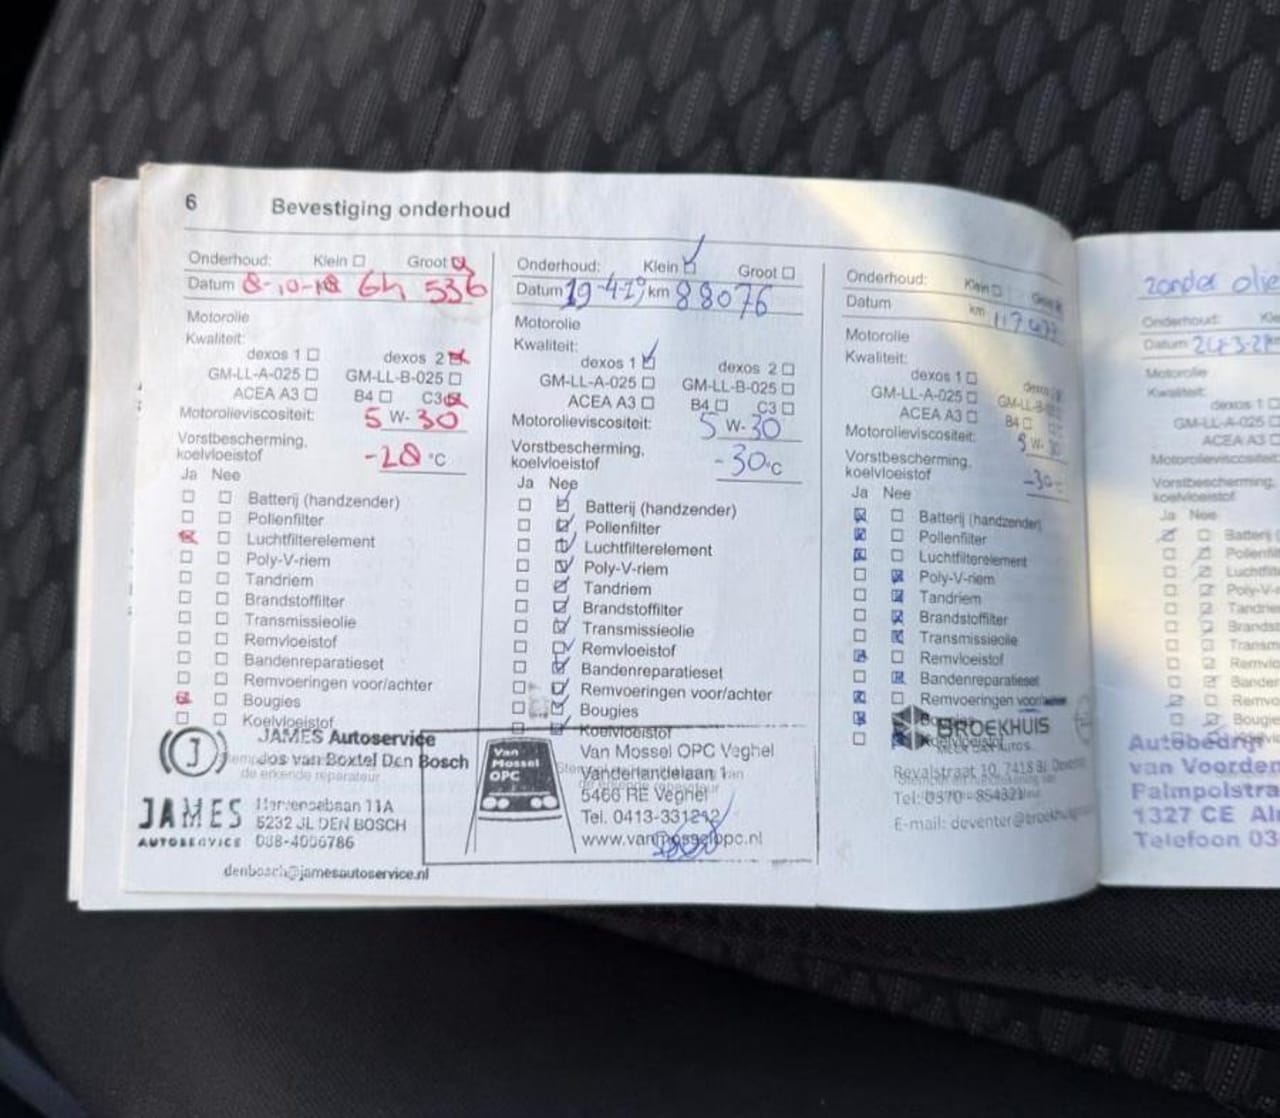 6 Bevestiging onderhoud
Onderhoud: Klein Groot
Datum 8-10-18 64 536
Motorolie
Kwaliteit:
dexos 1 dexos 2
GM-LL-A-025 GM-LL-B-025
ACEA A3 B4 C3
Motorolieviscositeit: 5 W- 30
Vorstbescherming,
koelvloeistof -28 °C
Ja Nee
Batterij (handzender)
Pollenfilter
Luchtfilterelement
Poly-V-riem
Tandriem
Brandstoffilter
Transmissieolie
Remvloeistof
Bandenreparatieset
Remvoeringen voor/achter
Bougies
Koelvloeistof
JAMES Autoservice
Jos van Boxtel Den Bosch
de erkende reparateur
JAMES
AUTOSERVICE
5232 JL DEN BOSCH
088-4006786
denbosch@jamesautoservice.nl
Onderhoud: Klein Groot
Datum 19-4-19 km 88076
Motorolie
Kwaliteit:
dexos 1 dexos 2
GM-LL-A-025 GM-LL-B-025
ACEA A3 B4 C3
Motorolieviscositeit: 5 W- 30
Vorstbescherming,
koelvloeistof -30 °C
Ja Nee
Batterij (handzender)
Pollenfilter
Luchtfilterelement
Poly-V-riem
Tandriem
Brandstoffilter
Transmissieolie
Remvloeistof
Bandenreparatieset
Remvoeringen voor/achter
Bougies
Koelvloeistof
Van
Mossel
OPC
Van Mossel OPC Veghel
Vanderlandelaan 1
5466 RE Veghel
Tel. 0413-331212
www.vanmosselopc.nl
Onderhoud: Klein Groot
Datum km
Motorolie
Kwaliteit:
dexos 1 dexos
GM-LL-A-025 GM-LL-B
ACEA A3 B4
Motorolieviscositeit: 5 W- 30
Vorstbescherming,
koelvloeistof -30
Ja Nee
Batterij (handzender)
Pollenfilter
Luchtfilterelement
Poly-V-riem
Tandriem
Brandstoffilter
Transmissieolie
Remvloeistof
Bandenreparatieset
Remvoeringen voor/achter
BROEKHUIS
voor auto's.
Revalstraat 10, 7418 BJ Deventer
Tel: 0570 - 854321
E-mail: deventer@broekhuis
zonder olie
Onderhoud: Kle
Datum
Motorolie
Kwaliteit:
dexos 1
GM-LL-A-025
ACEA A3
Motorolieviscositeit:
Vorstbescherming,
koelvloeistof
Ja Nee
Batterij (
Pollenfil
Luchtfilt
Poly-V-r
Tandrie
Brandst
Transm
Remvlo
Banden
Remvo
Bougie
Autobedrijf
van Voorden
Palmpolstra
1327 CE Al
Telefoon 03